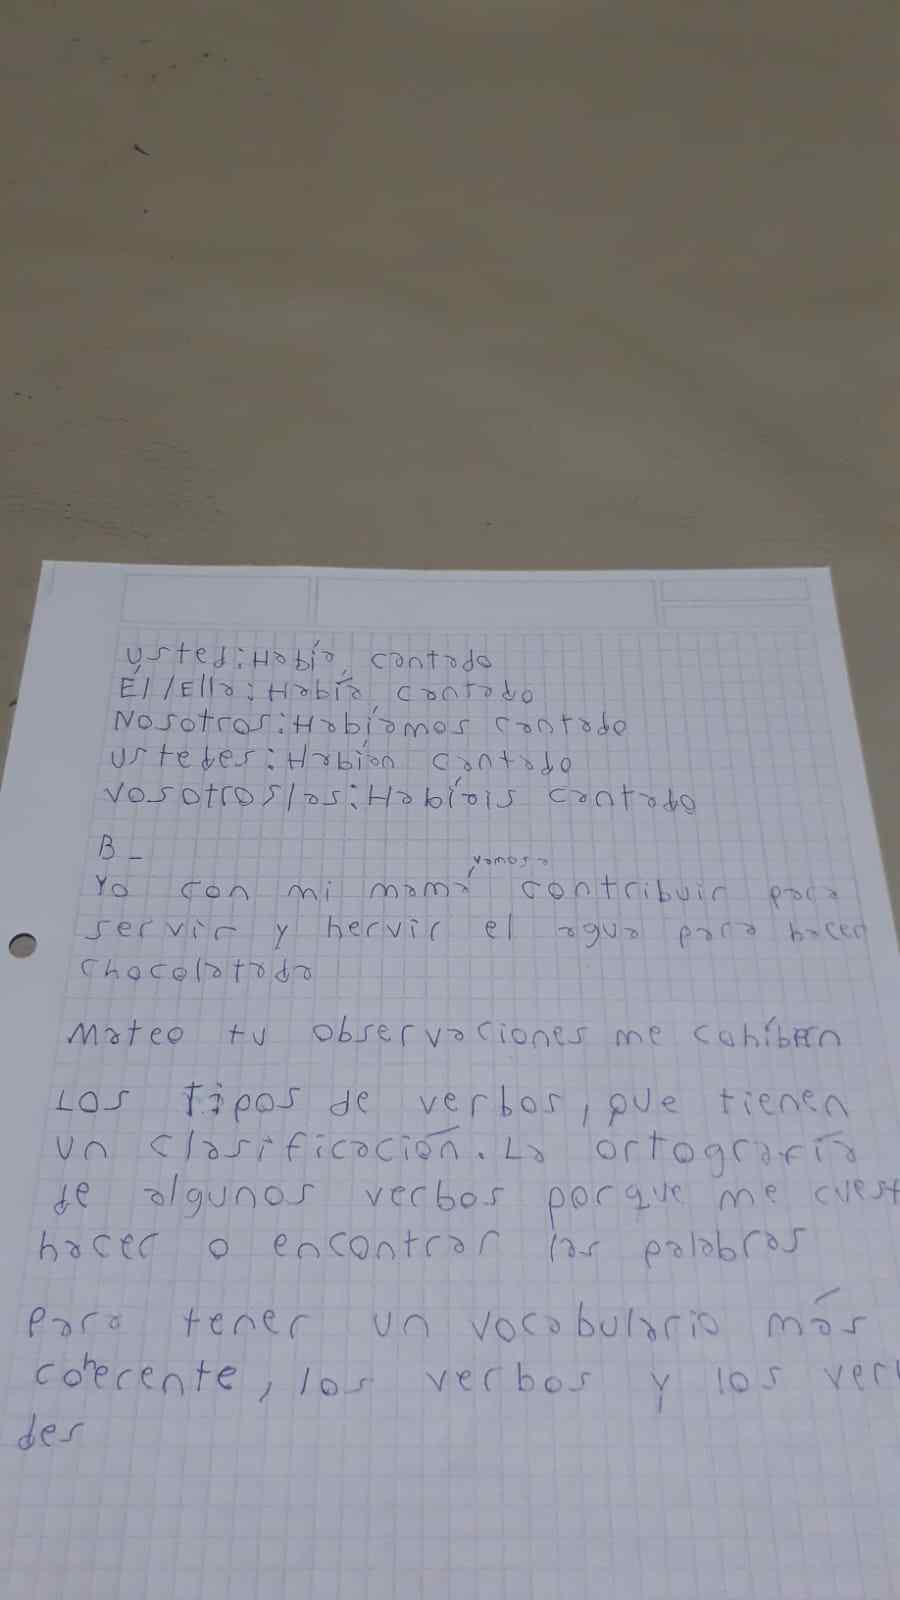 Usted: Había cantado
Él/Ella: Había cantado
Nosotros: Habíamos cantado
ustedes: Habían cantado
Vosotros/as: Habíais cantado
B_
vamos a
Yo con mi mamá contribuir para
servir y hervir el agua para hacer
chocolatada
Mateo tu observaciones me cohíben
Los tipos de verbos, que tienen
un clasificación. La ortografía
de algunos verbos porque me cuest
hacer o encontrar las palabras
Para tener un vocabulario más
coherente, los verbos y los ver
des